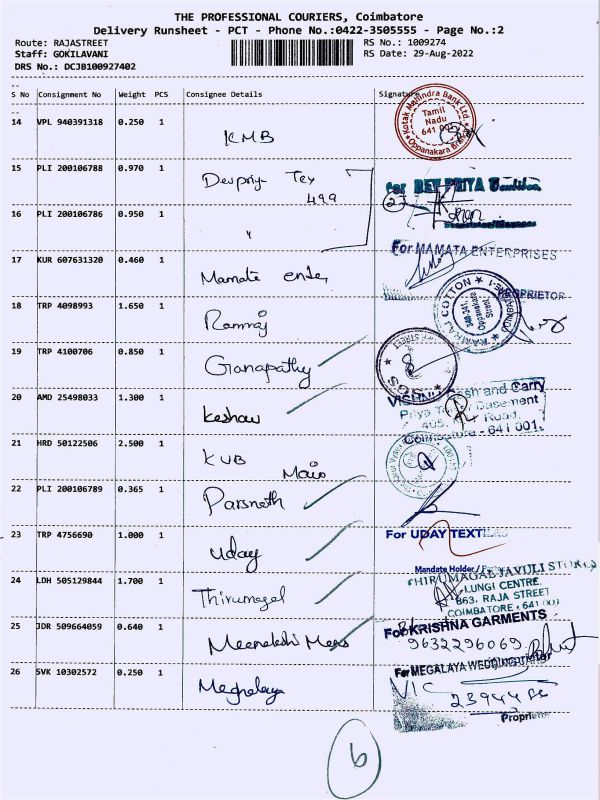 THE PROFESSIONAL COURIERS, Coimbatore
Delivery Runsheet - PCT - Phone No.:0422-3505555 - Page No.:2
Route: RAJASTREET
Staff: GOKILAVANI
DRS No.: DCJB100927402
RS No.: 1009274
RS Date: 29-Aug-2022
--
S No Consignment No Weight PCS Consignee Details Signature
--
14 VPL 940391318 0.250 1 KMB
Kotak Mahindra Bank Ltd.
Tamil
Nadu
641 001
Oppanakara
15 PLI 200106788 0.970 1 Devpriy Tex
499
For DEV PRIYA
16 PLI 200106786 0.950 1 "
17 KUR 607631320 0.460 1 Mamata enter
For MAMATA ENTERPRISES
PROPRIETOR
18 TRP 4098993 1.650 1 Ramraj
RAMRAJ COTTON
19 TRP 4100706 0.850 1 Ganapathy
SOS
20 AMD 25498033 1.300 1 Keshav
VISHNU Cash and Carry
Basement
405, Road,
Coimbatore - 641 001.
21 HRD 50122506 2.500 1 KUB
Main
22 PLI 200106789 0.365 1 Parsnath
23 TRP 4756690 1.000 1 Uday
For UDAY TEXTILES
Mandate Holder/
24 LDH 505129844 1.700 1 Thirumagal
THIRUMAGAL JAVULI STORES
LUNGI CENTRE
863, RAJA STREET
COIMBATORE - 641 001
25 JDR 509664059 0.640 1 Meenakshi Mens
For KRISHNA GARMENTS
9632296069
26 SVK 10302572 0.250 1 Meghalaya
For MEGALAYA WEDDING
VIC
Proprietor
6